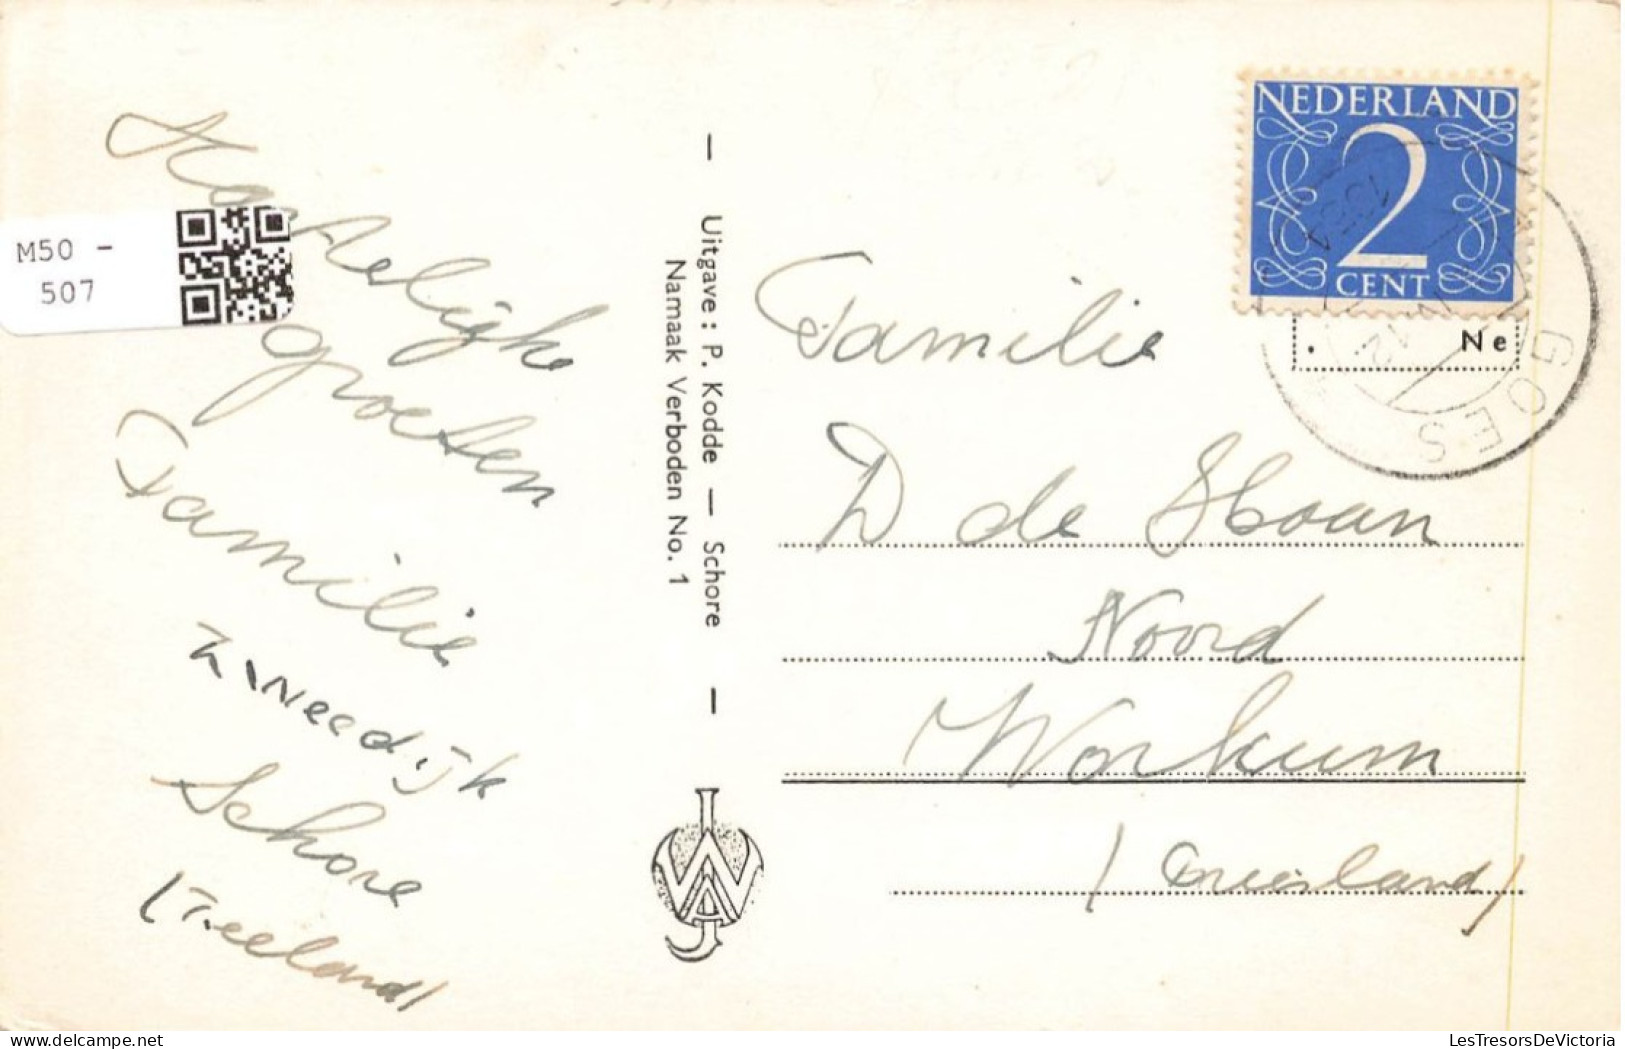 Hartelijke
groeten
Familie
Zweedijk
Schore
(Zeeland)
M50 -
507
— Uitgave : P. Kodde — Schore —
Namaak Verboden No. 1
NEDERLAND
2
CENT
. Ne
GOES
Familie
D de Haan
Noord
Workum
(Friesland)
LesTresorsDeVictoria
M50-507.com